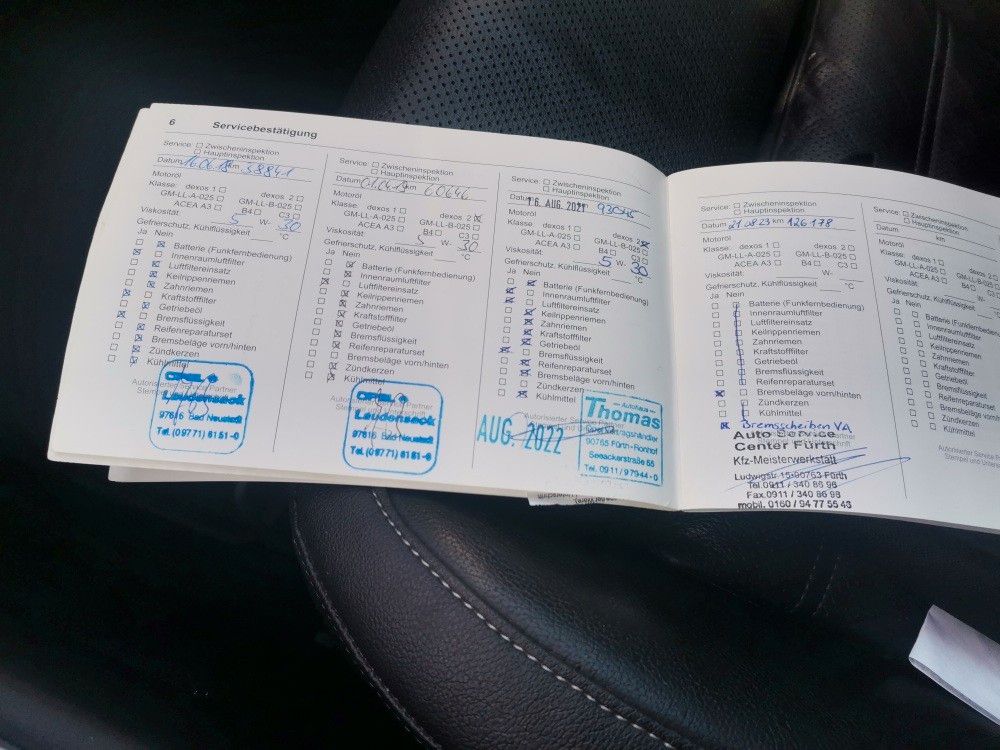 6 Servicebestätigung
Service: ☐ Zwischeninspektion
☐ Hauptinspektion
Datum 16.04.18 km 38841
Motoröl
Klasse: dexos 1 ☐ dexos 2 ☐
GM-LL-A-025 ☐ GM-LL-B-025 ☐
ACEA A3 ☐ B4 ☐ C3 ☐
Viskosität 5 W- 30
Gefrierschutz, Kühlflüssigkeit °C
Ja Nein
Batterie (Funkfernbedienung)
Innenraumluftfilter
Luftfiltereinsatz
Keilrippenriemen
Zahnriemen
Kraftstofffilter
Getriebeöl
Bremsflüssigkeit
Reifenreparaturset
Bremsbeläge vorn/hinten
Zündkerzen
Kühlmittel
Autorisierter Service Partner
OPEL
Laudenseck
97616 Bad Neustadt
Tel. (09771) 6151-0
Service: ☐ Zwischeninspektion
☐ Hauptinspektion
Datum 01.04.19 km 60646
Motoröl
Klasse: dexos 1 ☐ dexos 2 ☒
GM-LL-A-025 ☐ GM-LL-B-025 ☐
ACEA A3 ☐ B4 ☐ C3 ☐
Viskosität 5 W- 30
Gefrierschutz, Kühlflüssigkeit °C
Ja Nein
Batterie (Funkfernbedienung)
Innenraumluftfilter
Luftfiltereinsatz
Keilrippenriemen
Zahnriemen
Kraftstofffilter
Getriebeöl
Bremsflüssigkeit
Reifenreparaturset
Bremsbeläge vorn/hinten
Zündkerzen
Kühlmittel
OPEL
Laudenseck
97616 Bad Neustadt
Tel. (09771) 6151-0
Service: ☐ Zwischeninspektion
☐ Hauptinspektion
Datum 16. AUG. 2021 93045
Motoröl
Klasse: dexos 1 ☐ dexos 2 ☒
GM-LL-A-025 ☐ GM-LL-B-025 ☒
ACEA A3 ☐ B4 ☐ C3 ☐
Viskosität 5 W- 30
Gefrierschutz, Kühlflüssigkeit °C
Ja Nein
Batterie (Funkfernbedienung)
Innenraumluftfilter
Luftfiltereinsatz
Keilrippenriemen
Zahnriemen
Kraftstofffilter
Getriebeöl
Bremsflüssigkeit
Reifenreparaturset
Bremsbeläge vorn/hinten
Zündkerzen
Kühlmittel
Autorisierter Service Partner
AUG. 2022
— Autohaus —
Thomas
90765 Fürth-Ronhof
Seeackerstraße 55
Tel. 0911 / 97944-0
Service: ☐ Zwischeninspektion
☐ Hauptinspektion
Datum 21.08.23 km 126.178
Motoröl
Klasse: dexos 1 ☐ dexos 2 ☐
GM-LL-A-025 ☐ GM-LL-B-025 ☐
ACEA A3 ☐ B4 ☐ C3 ☐
Viskosität W-
Gefrierschutz, Kühlflüssigkeit °C
Ja Nein
Batterie (Funkfernbedienung)
Innenraumluftfilter
Luftfiltereinsatz
Keilrippenriemen
Zahnriemen
Kraftstofffilter
Getriebeöl
Bremsflüssigkeit
Reifenreparaturset
☒ Bremsbeläge vorn/hinten
Zündkerzen
Kühlmittel
☒ Bremsscheiben VA
Auto Service
Center Fürth
Kfz-Meisterwerkstatt
Ludwigstr. 15·90763 Fürth
Tel. 0911 / 340 86 96
Fax. 0911 / 340 86 98
mobil. 0160 / 94 77 55 43
Service: ☐ Zwischeninspektion
☐ Hauptinspektion
Datum km
Motoröl
Klasse: dexos 1 ☐
GM-LL-A-025 ☐
ACEA A3 ☐
Viskosität
Gefrierschutz, Kühlflüssigkeit
Ja Nein
Batterie (Funkfernbedienung)
Innenraumluftfilter
Luftfiltereinsatz
Keilrippenriemen
Zahnriemen
Kraftstofffilter
Getriebeöl
Bremsflüssigkeit
Reifenreparaturset
Bremsbeläge vorn/hinten
Zündkerzen
Kühlmittel
Autorisierter Service Partner
Stempel und